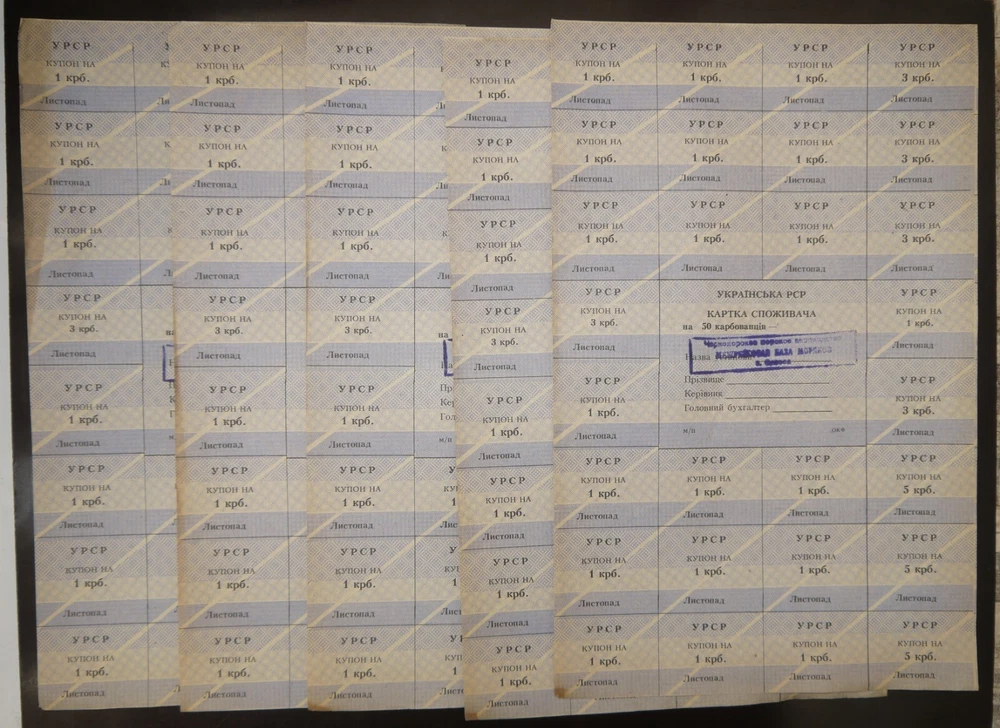 УРСР
КУПОН НА
1 крб.
Листопад
УРСР
КУПОН НА
1 крб.
Листопад
УРСР
КУПОН НА
1 крб.
Листопад
УРСР
КУПОН НА
3 крб.
Листопад
УРСР
КУПОН НА
1 крб.
Листопад
УРСР
КУПОН НА
1 крб.
Листопад
УРСР
КУПОН НА
1 крб.
Листопад
УРСР
КУПОН НА
1 крб.
Листопад
УРСР
КУПОН НА
1 крб.
Листопад
УРСР
КУПОН НА
1 крб.
Листопад
УРСР
КУПОН НА
1 крб.
Листопад
УРСР
КУПОН НА
3 крб.
Листопад
УРСР
КУПОН НА
1 крб.
Листопад
УРСР
КУПОН НА
1 крб.
Листопад
УРСР
КУПОН НА
1 крб.
Листопад
УРСР
КУПОН НА
1 крб.
Листопад
УРСР
КУПОН НА
1 крб.
Листопад
УРСР
КУПОН НА
1 крб.
Листопад
УРСР
КУПОН НА
1 крб.
Листопад
УРСР
КУПОН НА
3 крб.
на
Листопад
УРСР
КУПОН НА
1 крб.
Листопад
м/п
УРСР
КУПОН НА
1 крб.
Листопад
УРСР
КУПОН НА
1 крб.
Листопад
УРСР
КУПОН НА
1 крб.
Листопад
УРСР
КУПОН НА
1 крб.
Листопад
УРСР
КУПОН НА
1 крб.
Листопад
УРСР
КУПОН НА
1 крб.
Листопад
УРСР
КУПОН НА
3 крб.
Листопад
УРСР
КУПОН НА
1 крб.
Листопад
УРСР
КУПОН НА
1 крб.
Листопад
УРСР
КУПОН НА
1 крб.
Листопад
УРСР
КУПОН НА
1 крб.
Листопад
УРСР УРСР УРСР УРСР
КУПОН НА КУПОН НА КУПОН НА КУПОН НА
1 крб. 1 крб. 1 крб. 3 крб.
Листопад Листопад Листопад Листопад
УРСР УРСР УРСР УРСР
КУПОН НА КУПОН НА КУПОН НА КУПОН НА
1 крб. 1 крб. 1 крб. 3 крб.
Листопад Листопад Листопад Листопад
УРСР УРСР УРСР УРСР
КУПОН НА КУПОН НА КУПОН НА КУПОН НА
1 крб. 1 крб. 1 крб. 3 крб.
Листопад Листопад Листопад Листопад
УРСР
КУПОН НА
3 крб.
Листопад
УРСР
КУПОН НА
1 крб.
Листопад
УКРАЇНСЬКА РСР
КАРТКА СПОЖИВАЧА
на 50 карбованців
Черноморское морское
БАЗА
г. Одесса
Назва
Прізвище
Керівник
Головний бухгалтер
м/п
УРСР
КУПОН НА
1 крб.
Листопад
УРСР
КУПОН НА
3 крб.
Листопад
УРСР УРСР УРСР УРСР
КУПОН НА КУПОН НА КУПОН НА КУПОН НА
1 крб. 1 крб. 1 крб. 5 крб.
Листопад Листопад Листопад Листопад
УРСР УРСР УРСР УРСР
КУПОН НА КУПОН НА КУПОН НА КУПОН НА
1 крб. 1 крб. 1 крб. 5 крб.
Листопад Листопад Листопад Листопад
УРСР УРСР УРСР УРСР
КУПОН НА КУПОН НА КУПОН НА КУПОН НА
1 крб. 1 крб. 1 крб. 5 крб.
Листопад Листопад Листопад Листопад